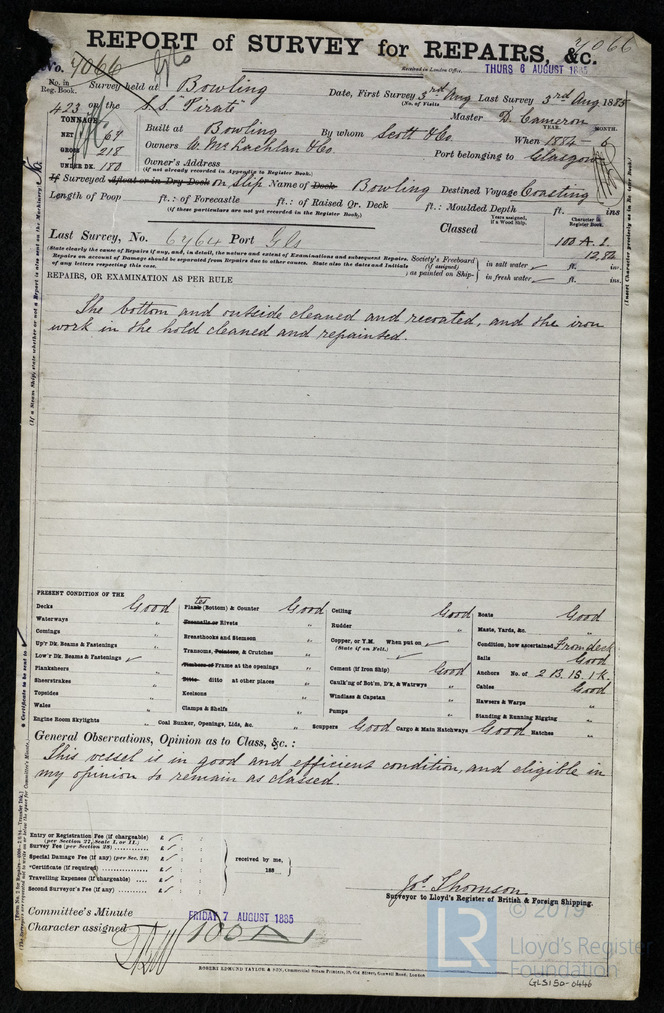 REPORT of SURVEY for REPAIRS, &c.
No. 7066
7066
Received in London Office, THURS 6 AUGUST 1885
No. in Reg. Book. Survey held at Bowling Date, First Survey 3rd Aug Last Survey 3rd Aug 1885
(No. of Visits)
423 on the S.S. "Pirate" Master D. Cameron
TONNAGE
NET 69 Built at Bowling By whom Scott & Co. When 1884 - 6
YEAR. MONTH.
GROSS 218 Owners W. McLachlan & Co. Port belonging to Glasgow
UNDER DK. 180 Owner's Address
(if not already recorded in Appendix to Register Book.)
If Surveyed Afloat or in Dry Dock on Slip Name of Dock Bowling Destined Voyage Coasting
Length of Poop ft.: of Forecastle ft.: of Raised Qr. Deck ft.: Moulded Depth ft. ins
(if these particulars are not yet recorded in the Register Book.)
Years assigned, if a Wood Ship.
Character in Register Book.
Last Survey, No. 6464 Port Gls Classed 100 A.1.
12,84
(State clearly the cause of Repairs if any, and, in detail, the nature and extent of Examinations and subsequent Repairs.
Repairs on account of Damage should be separated from Repairs due to other causes. State also the dates and Initials
of any letters respecting this case.
Society's Freeboard (if assigned) as painted on Ship- in salt water ft. ins.
in fresh water ft. ins.
REPAIRS, OR EXAMINATION AS PER RULE
The bottom and outside cleaned and recoated, and the iron
work in the hold cleaned and repainted.
PRESENT CONDITION OF THE
Decks Good Planktes (Bottom) & Counter Good Ceiling Good Boats Good
Waterways " Treenails or Rivets " Rudder " Masts, Yards, &c. "
Comings " Breasthooks and Stemson " Copper, or Y.M. When put on Condition, how ascertained From deck
(State if on Felt.)
Up'r Dk. Beams & Fastenings " Transoms, Pointers, & Crutches " Sails Good
Low'r Dk. Beams & Fastenings Timbers of Frame at the openings " Cement (if Iron Ship) Good Anchors No. of 2 B. 1S. 1K.
Planksheers " Ditto ditto at other places " Caulk'ng of Bot'm, D'k, & Watrwys " Cables Good
Sheerstrakes " Keelsons " Windlass & Capstan " Hawsers & Warps "
Topsides " Clamps & Shelfs " Pumps " Standing & Running Rigging "
Wales "
Engine Room Skylights " Coal Bunker, Openings, Lids, &c. " Scuppers Good Cargo & Main Hatchways Good Hatches "
General Observations, Opinion as to Class, &c.:
This vessel is in good and efficient condition, and eligible in
my opinion to remain as classed.
Entry or Registration Fee (if chargeable) £ : :
(per Section 27, Scale I. or II.)
Survey Fee (per Section 28) £ : :
Special Damage Fee (if any) (per Sec. 28) £ : : received by me,
*Certificate (if required) £ : : 188
Travelling Expenses (if chargeable) £ : :
Second Surveyor's Fee (if any) £ : :
Jos. Thomson
Surveyor to Lloyd's Register of British & Foreign Shipping.
Committee's Minute FRIDAY 7 AUGUST 1885
Character assigned 100 A1
ROBERT EDMUND TAYLOR & SON, Commercial Steam Printers, 19, Old Street, Goswell Road, London
© 2019
LR Lloyd's Register
Foundation
GLS150-0446